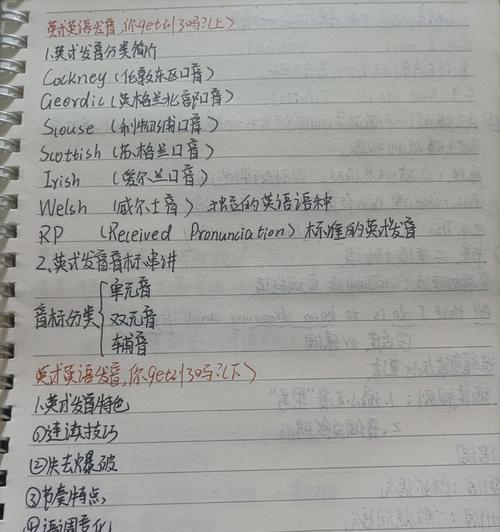 英式英语发音,你get到了吗?(上)
1.英式发音分类简介
Cockney (伦敦东区口音)
Geordie (英格兰北部口音)
Scouse (利物浦口音)
Scottish (苏格兰口音)
Irish (爱尔兰口音)
Welsh (威尔士音) 独立的英语语种
RP (Received Pronunciation) 标准的英式发音
2.英式发音音标串讲
音标分类
单元音
双元音
辅音
英式英语发音,你get到了吗?(下)
1.英式发音特色
①连读技巧
②失去爆破
③节奏特点
④语调变化